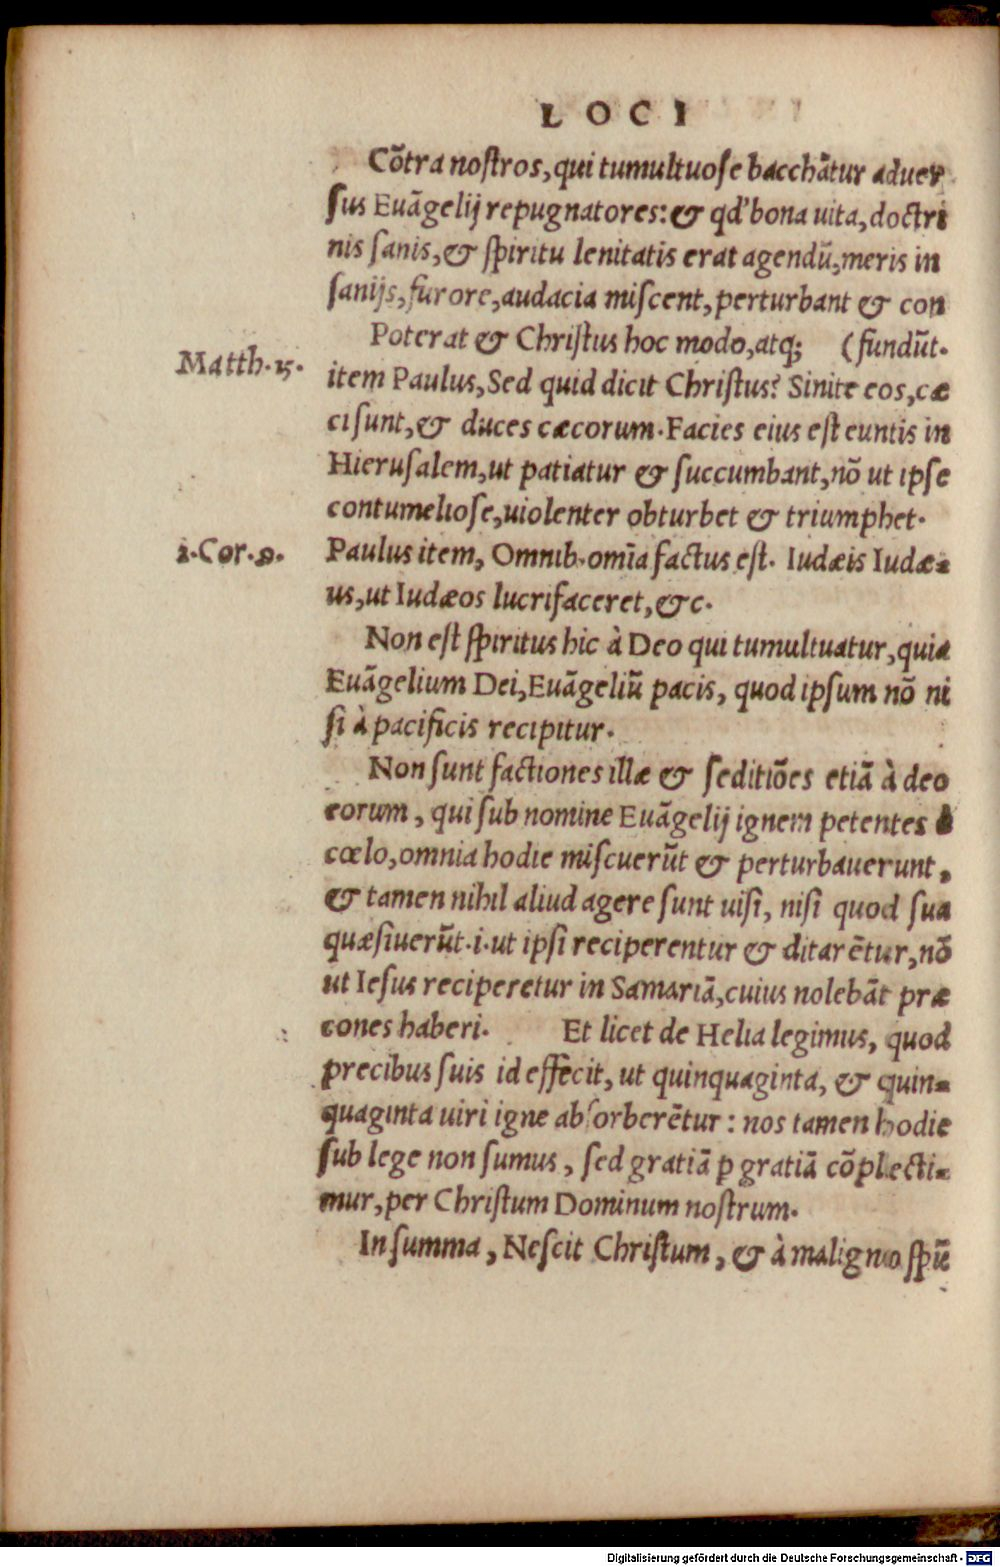 LOCI
Cõtra nostros, qui tumultuose bacchãtur aduer
sus Euãgelij repugnatores: & qď bona uita, doctri
nis sanis, & spiritu lenitatis erat agendũ, meris in
sanijs, furore, audacia miscent, perturbant & con
Poterat & Christus hoc modo, atq; (fundũt.
Matth. 15.
item Paulus, Sed quid dicit Christus? Sinite eos, cæ
ci sunt, & duces cæcorum. Facies eius est euntis in
Hierusalem, ut patiatur & succumbant, nõ ut ipse
contumeliose, uiolenter obturbet & triumphet.
1. Cor. 9.
Paulus item, Omnib. omĩa factus est. Iudæis Iudæ-
us, ut Iudæos lucrifaceret, &c.
Non est spiritus hic à Deo qui tumultuatur, quia
Euãgelium Dei, Euãgeliũ pacis, quod ipsum nõ ni
si à pacificis recipitur.
Non sunt factiones illæ & seditiões etiã à deo
eorum, qui sub nomine Euãgelij ignem petentes è
cœlo, omnia hodie miscuerũt & perturbauerunt,
& tamen nihil aliud agere sunt uisi, nisi quod sua
quæsiuerũt .i. ut ipsi reciperentur & ditarẽtur, nõ
ut Iesus reciperetur in Samariã, cuius nolebãt præ
cones haberi. Et licet de Helia legimus, quod
precibus suis id effecit, ut quinquaginta, & quin-
quaginta uiri igne absorberẽtur: nos tamen hodie
sub lege non sumus, sed gratiã ꝑ gratiã cõplecti-
mur, per Christum Dominum nostrum.
In summa, Nescit Christum, & à maligno spũ
Digitalisierung gefördert durch die Deutsche Forschungsgemeinschaft - DFG